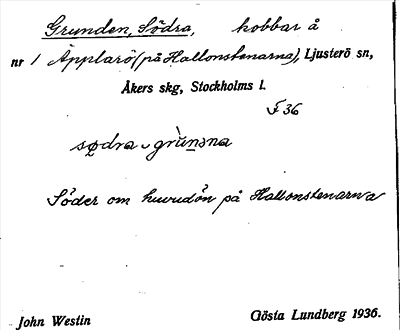 Grunden, Södra, kobbar å
nr 1 Äpplarö (på Hallonstenarna), Ljusterö sn,
Åkers skg, Stockholms l.
F 36
sødra grùnəna
Söder om huvudön på Hallonstenarna
John Westin Gösta Lundberg 1936.